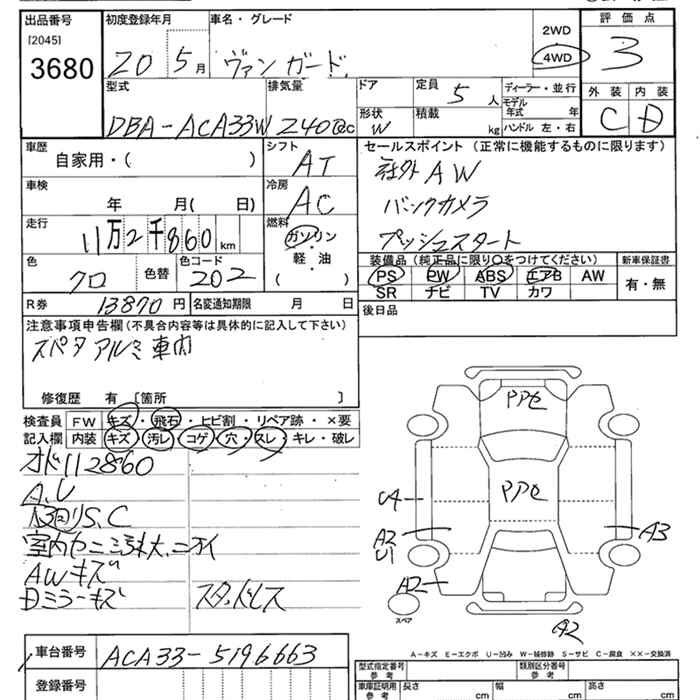 出品番号 初度登録年月 車名・グレード 2WD 評価点
[2045]
3680 20 5月 ヴァンガード 4WD 3
型式 排気量 ドア 定員 5人 ディーラー・並行 外装 内装
モデル年式 年
DBA-ACA33W 2400cc 形状 W 積載 kg ハンドル 左・右 C D
車歴 シフト セールスポイント (正常に機能するものに限ります)
自家用・( ) AT 社外AW
車検 冷房
年 月( 日) AC バックカメラ
走行 燃料
11万2千860km ガソリン プッシュスタート
色 色替 色コード 軽・油 装備品 (純正品に限り○をつけてください) 新車保証書
クロ 202 ( ) PS PW ABS エアB AW 有・無
SR ナビ TV カワ
R券 13870円 名変通知期限 月 日 後日品
注意事項申告欄 (不具合内容等は具体的に記入して下さい)
スペタアルミ車内
修復歴 有 〔箇所 〕
検査員 FW キズ・飛石・ヒビ割・リペア跡・×要
記入欄 内装 キズ・汚レ・コゲ・穴・スレ・キレ・破レ
オド112860
A.U
S.C
AWキズ
Dミラーキズ スタッドレス
PPC
PPC
U4
A2
U1
A3
A2
スペア
A2
車台番号 ACA33-5196663
登録番号
A-キズ E-エクボ U-凹み W-補修跡 S-サビ C-腐食 ××-交換済
型式指定番号 参考 類別区分番号 参考
車庫証明用 参考 長さ cm 幅 cm 高さ cm